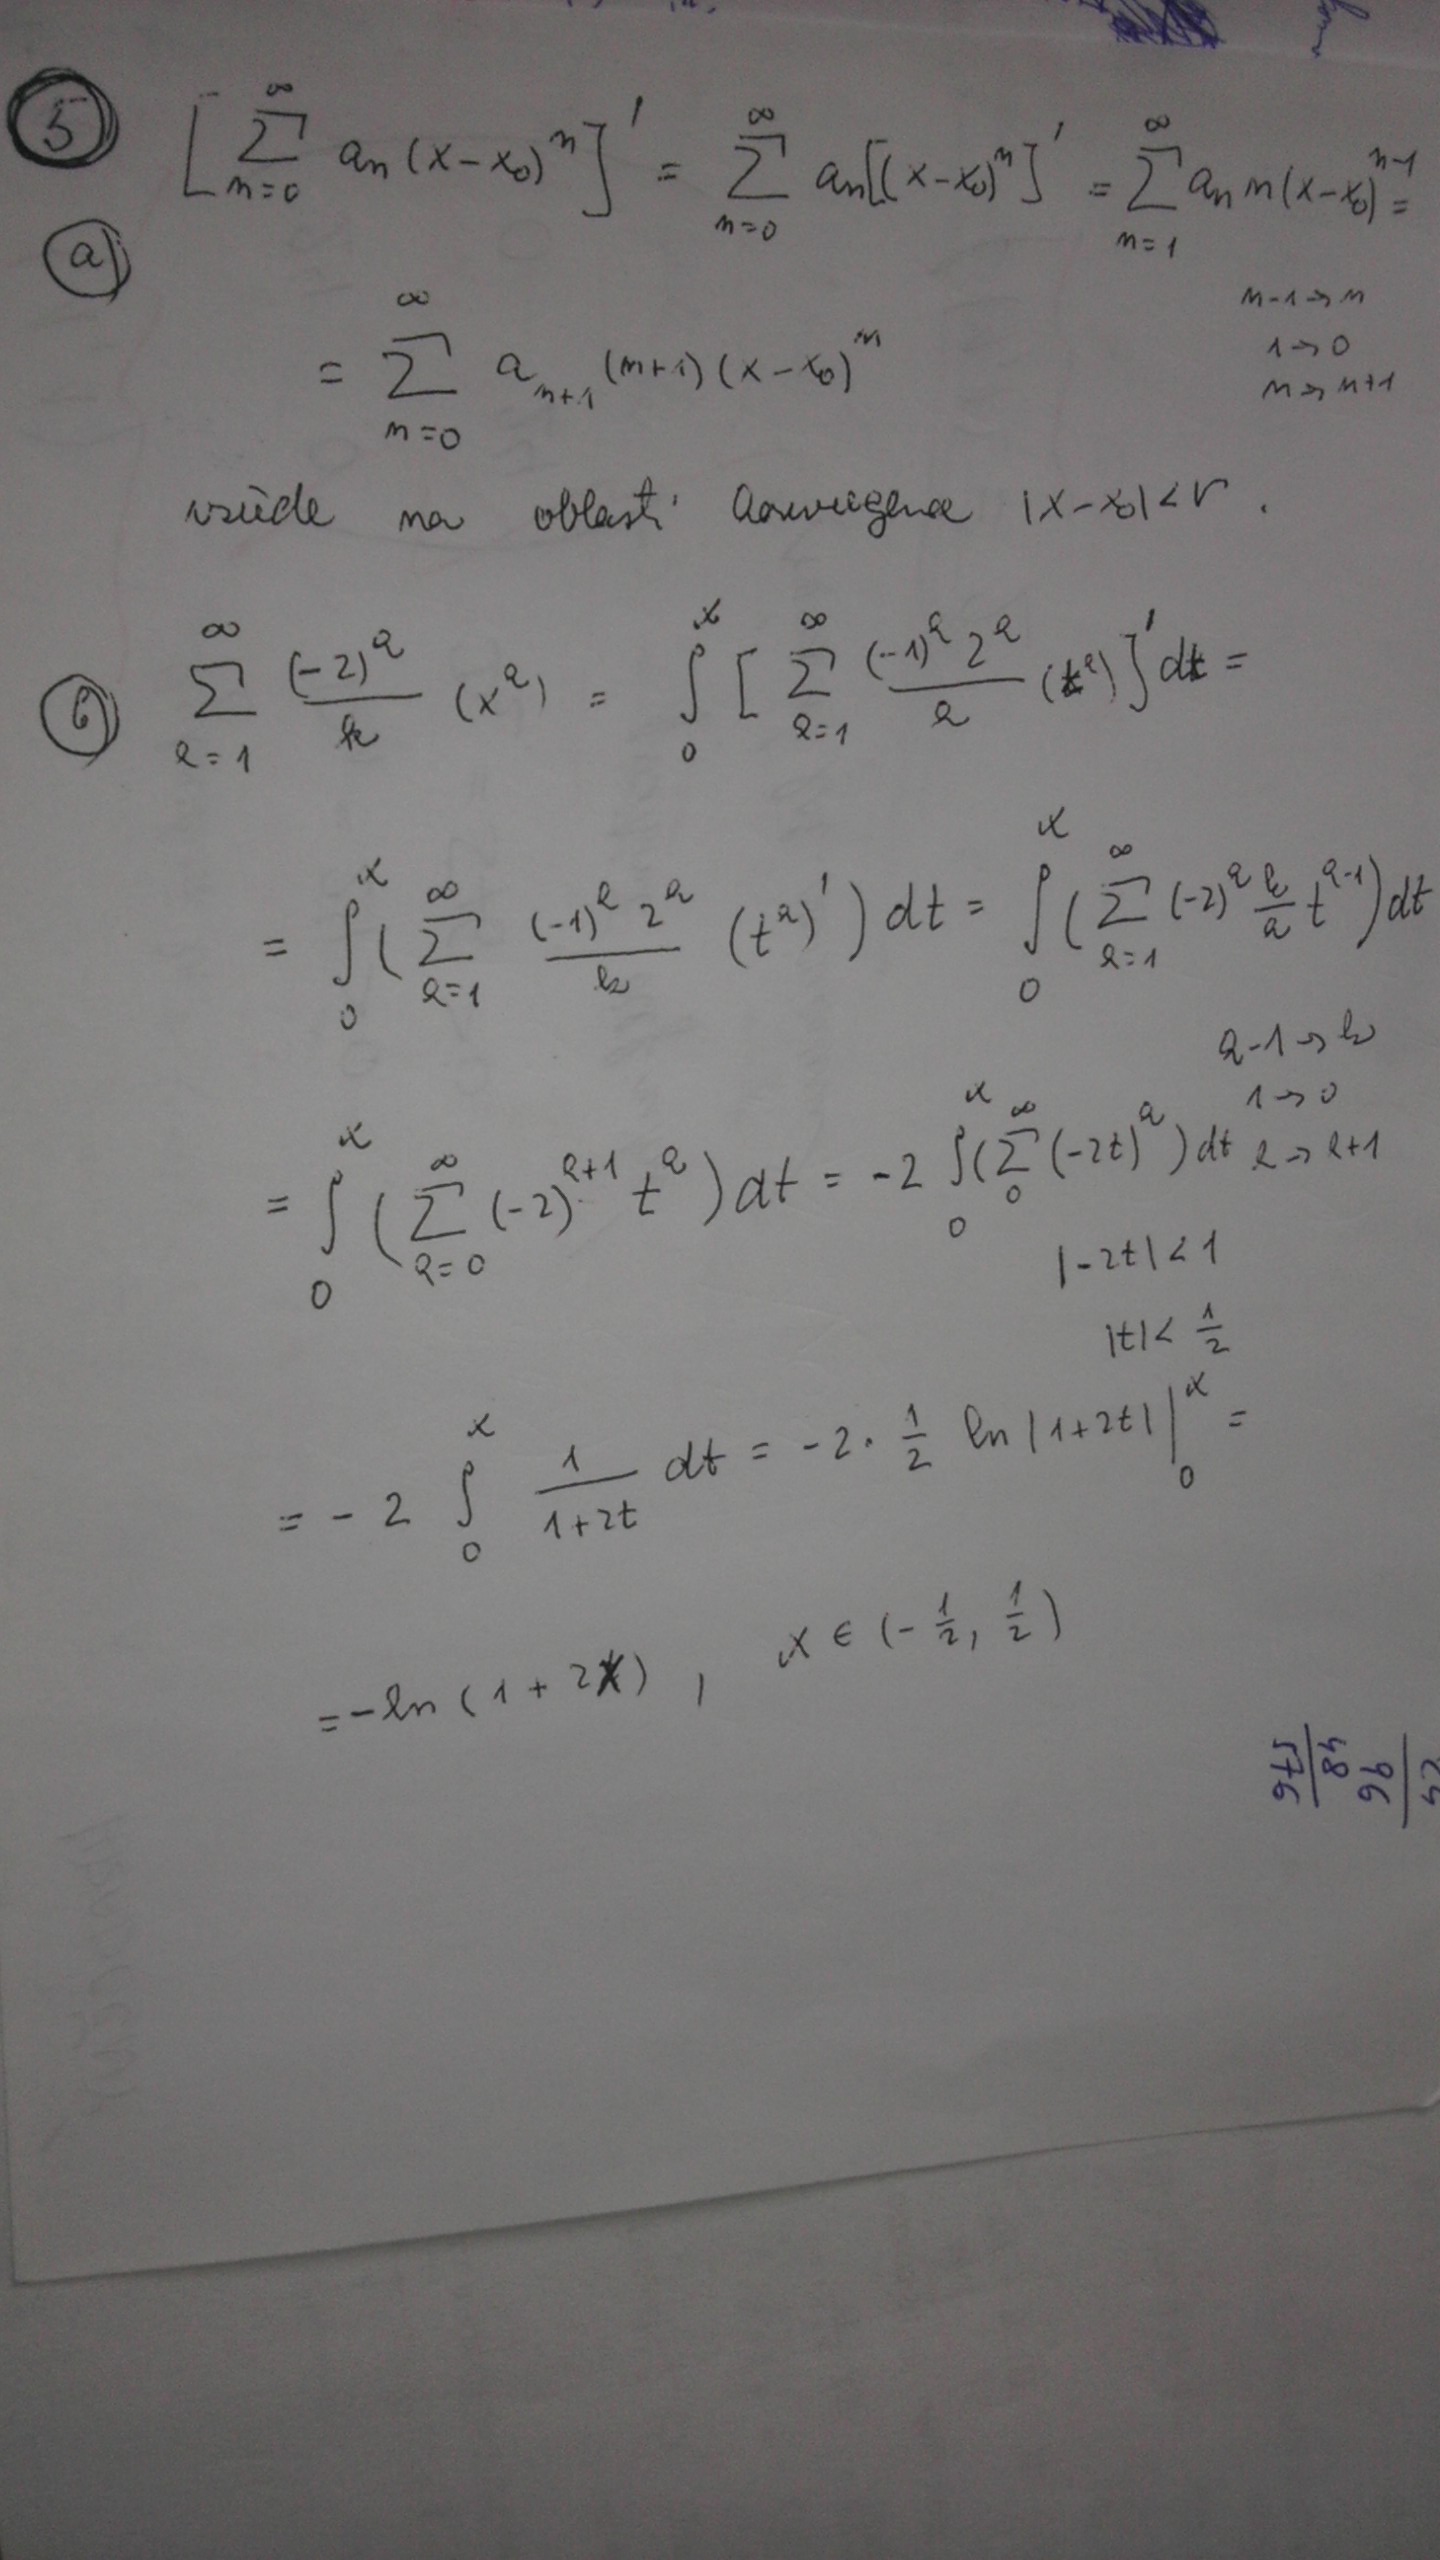 5 [∑_{n=0}^{∞} a_n (x-x_0)^n]' = ∑_{n=0}^{∞} a_n[(x-x_0)^n]' = ∑_{n=1}^{∞} a_n n (x-x_0)^{n-1} =
a)
n-1→n
= ∑_{n=0}^{∞} a_{n+1} (n+1) (x-x_0)^n
1→0
n→n+1
všude na oblasti konvergence |x-x_0|<r.
b) ∑_{k=1}^{∞} (-2)^k/k (x^k) = ∫_0^x [∑_{k=1}^{∞} (-1)^k 2^k/k (t^k)]' dt =
= ∫_0^x (∑_{k=1}^{∞} (-1)^k 2^k/k (t^k)') dt = ∫_0^x (∑_{k=1}^{∞} (-2)^k k/k t^{k-1}) dt
k-1→k
1→0
= ∫_0^x (∑_{k=0}^{∞} (-2)^{k+1} t^k) dt = -2 ∫_0^x (∑_0^{∞} (-2t)^k) dt k→k+1
|-2t|<1
|t|< 1/2
= -2 ∫_0^x 1/(1+2t) dt = -2 · 1/2 ln |1+2t| |_0^x =
= -ln (1+2x), x ∈ (-1/2, 1/2)